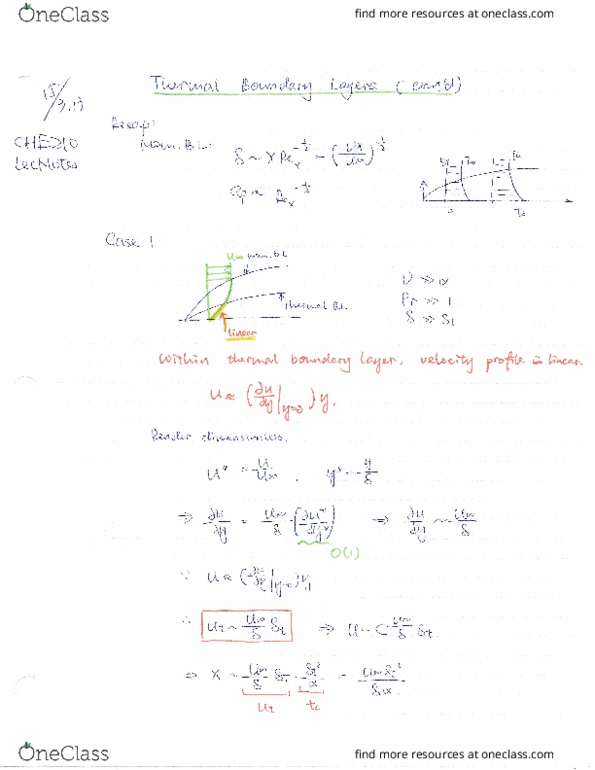 OneClass
find more resources at oneclass.com
Thermal Boundary Layers (cont'd)
15/3.13
Recap:
CHE210
Lec Notes
Mom. B.L.
δ ~ x Re_x^{-1/2}
Re_x^{-1/2}
Case 1
U∞ mom. b.L
Thermal B.L.
linear
ν >> α
Pr >> 1
δ >> δt
Within thermal boundary layer, velocity profile is linear.
u ≈ (∂u/∂y|y=0) y.
Render dimensionless.
u* = u/u∞ , y* = y/δ
⇒ ∂u/∂y = u∞/δ (∂u*/∂y*) ⇒ ∂u/∂y ~ u∞/δ
O(1)
∵ u ≈ (∂u/∂y|y=0) y
∴ ut ~ u∞/δ δt ⇒ u ~ C u∞/δ δt
⇒ x ~ u∞/δ δt · δt²/α
ut tc
OneClass
find more resources at oneclass.com